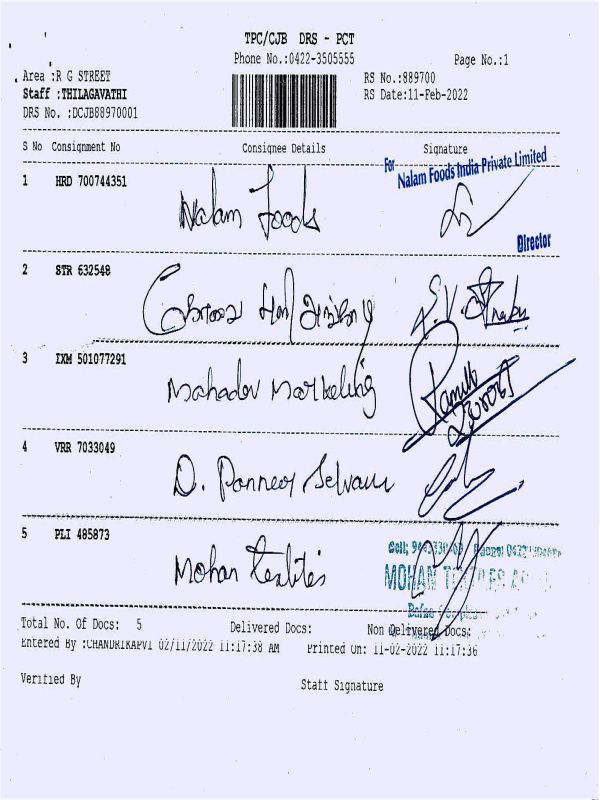 TPC/CJB DRS - PCT
Phone No.:0422-3505555
Page No.:1
Area :R G STREET
RS No.:889700
Staff :THILAGAVATHI
RS Date:11-Feb-2022
DRS No. :DCJB88970001
S No Consignment No Consignee Details Signature
For Nalam Foods India Private Limited
1 HRD 700744351 Nalam Foods
Director
2 STR 632548
S.V. Prabu
3 IXM 501077291 Mahadev Marketing
4 VRR 7033049 D. Panneer Selvam
5 PLI 485873 Mohan Textiles
Cell:
MOHAN
Total No. Of Docs: 5 Delivered Docs: Non Delivered Docs:
Entered By :CHANDRIKAPVI 02/11/2022 11:17:38 AM Printed On: 11-02-2022 11:17:36
Verified By Staff Signature